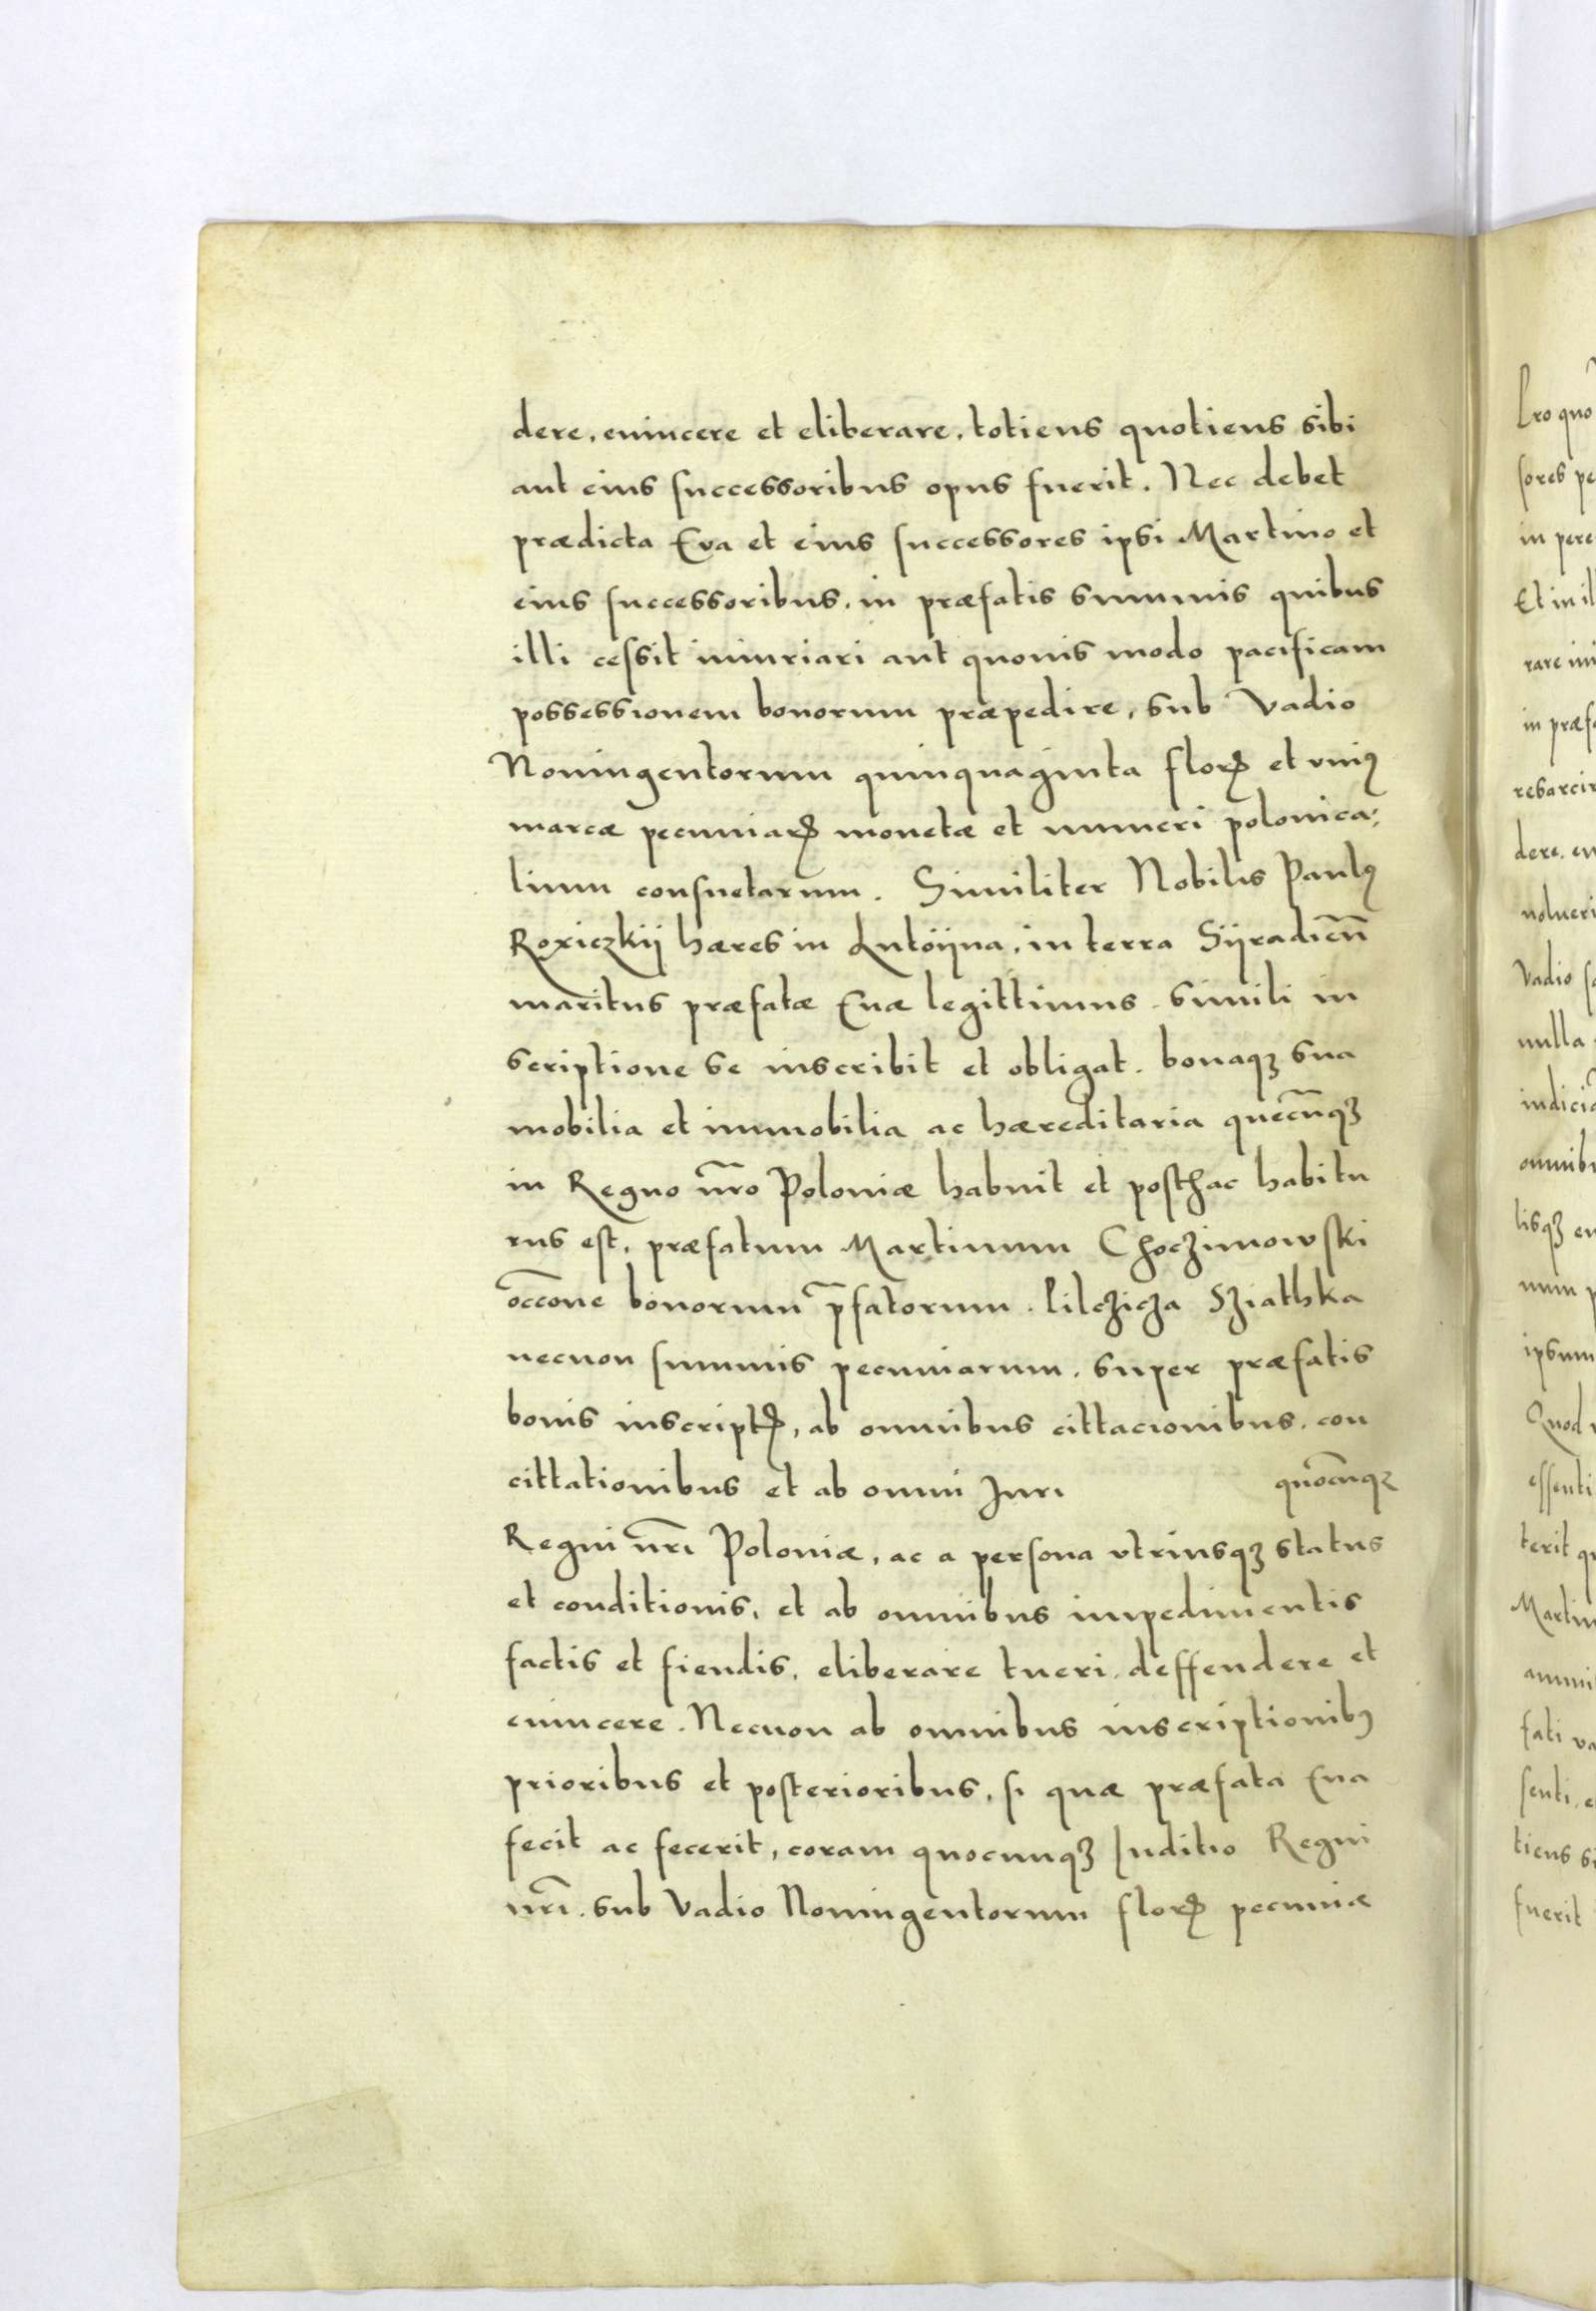 dere, euincere et eliberare, totiens quotiens sibi
aut eius successoribus opus fuerit. Nec debet
prædicta Eva et eius successores ipsi Martino et
eius successoribus, in præfatis summis quibus
illi cessit iniuriari aut quouis modo pacificam
possessionem bonorum præpedire, sub Vadio
Noningentorum quinquaginta florꝝ et vniꝰ
marcæ pecuniarꝝ monetæ et numeri polonica:
lium consuetarum. Similiter Nobilis Paulꝰ
Roxiczkij hæres in Lutoijna, in terra Sijradien̄
maritus præfatæ Euæ legittimus. simili in
scriptione se inscribit et obligat. bonaqꝫ sua
mobilia et immobilia ac hæreditaria quecūqꝫ
in Regno nr̄o Poloniæ habuit et posthac habitu
rus est, præfatum Martinum Choczimowski
occ̄one bonorum p̄fatorum. Pilczicza Sziathka
necnon summis pecuniarum. super præfatis
bonis inscriptꝝ, ab omnibus cittacionibus. con
cittationibus et ab omni Juri quocūqꝫ
Regni nr̄i Poloniæ, ac a persona vtriusqꝫ status
et conditionis, et ab omnibus impedimentis
factis et fiendis, eliberare tueri, deffendere et
euincere. Necnon ab omnibus inscriptionibꝰ
prioribus et posterioribus, si quæ præfata Eua
fecit ac fecerit, coram quocunqꝫ Juditio Regni
nr̄i. sub Vadio Noningentorum florꝝ pecuniæ